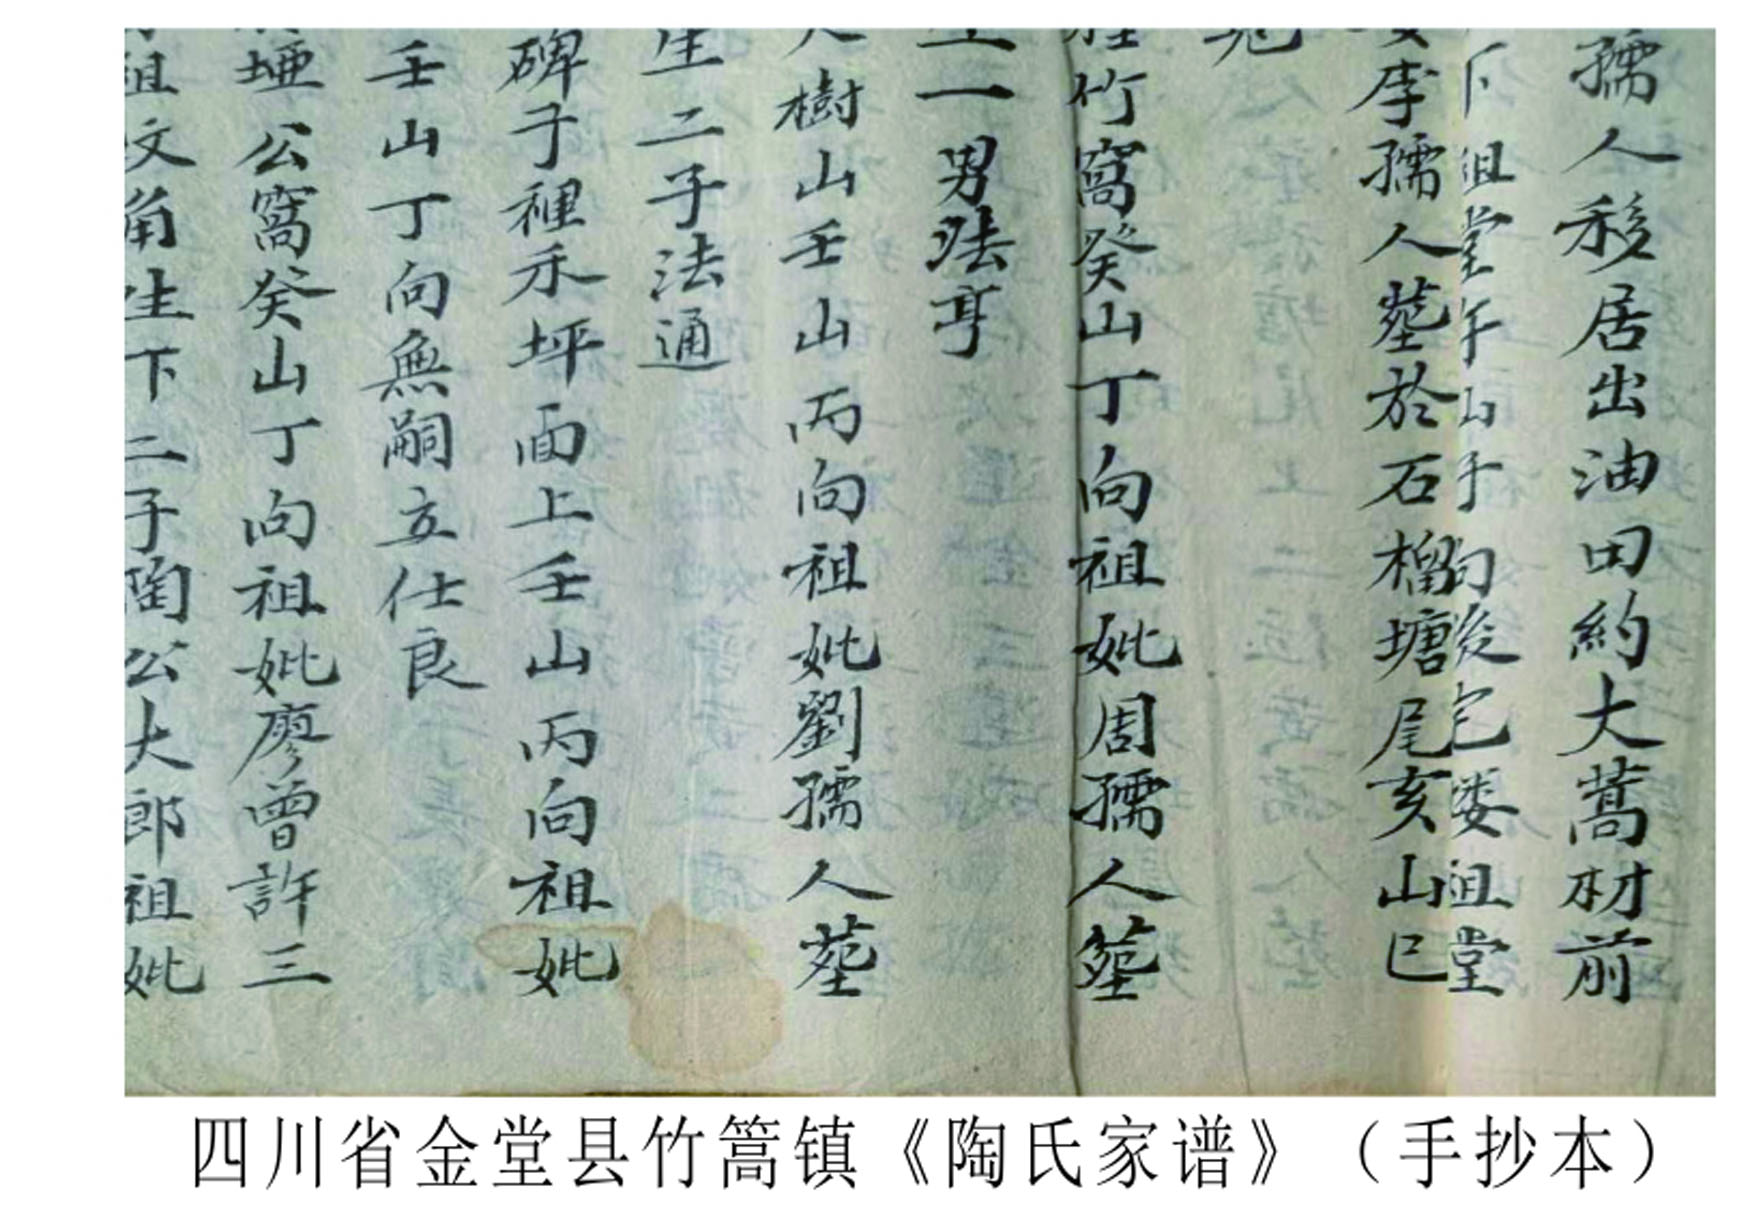 孺人移居出油田約大蒿材前
下祖堂午山子向後宅婁祖堂
李孺人塟於石榴塘尾亥山巳
竹窩癸山丁向祖妣周孺人塟
一男法亨
樹山壬山丙向祖妣劉孺人塟
生二子法通
碑子裡禾坪面上壬山丙向祖妣
壬山丁向無嗣立仕良
埡公窩癸山丁向祖妣廖曾許三
祖文角生下二子陶公大郎祖妣
四川省金堂县竹篙镇《陶氏家谱》（手抄本）